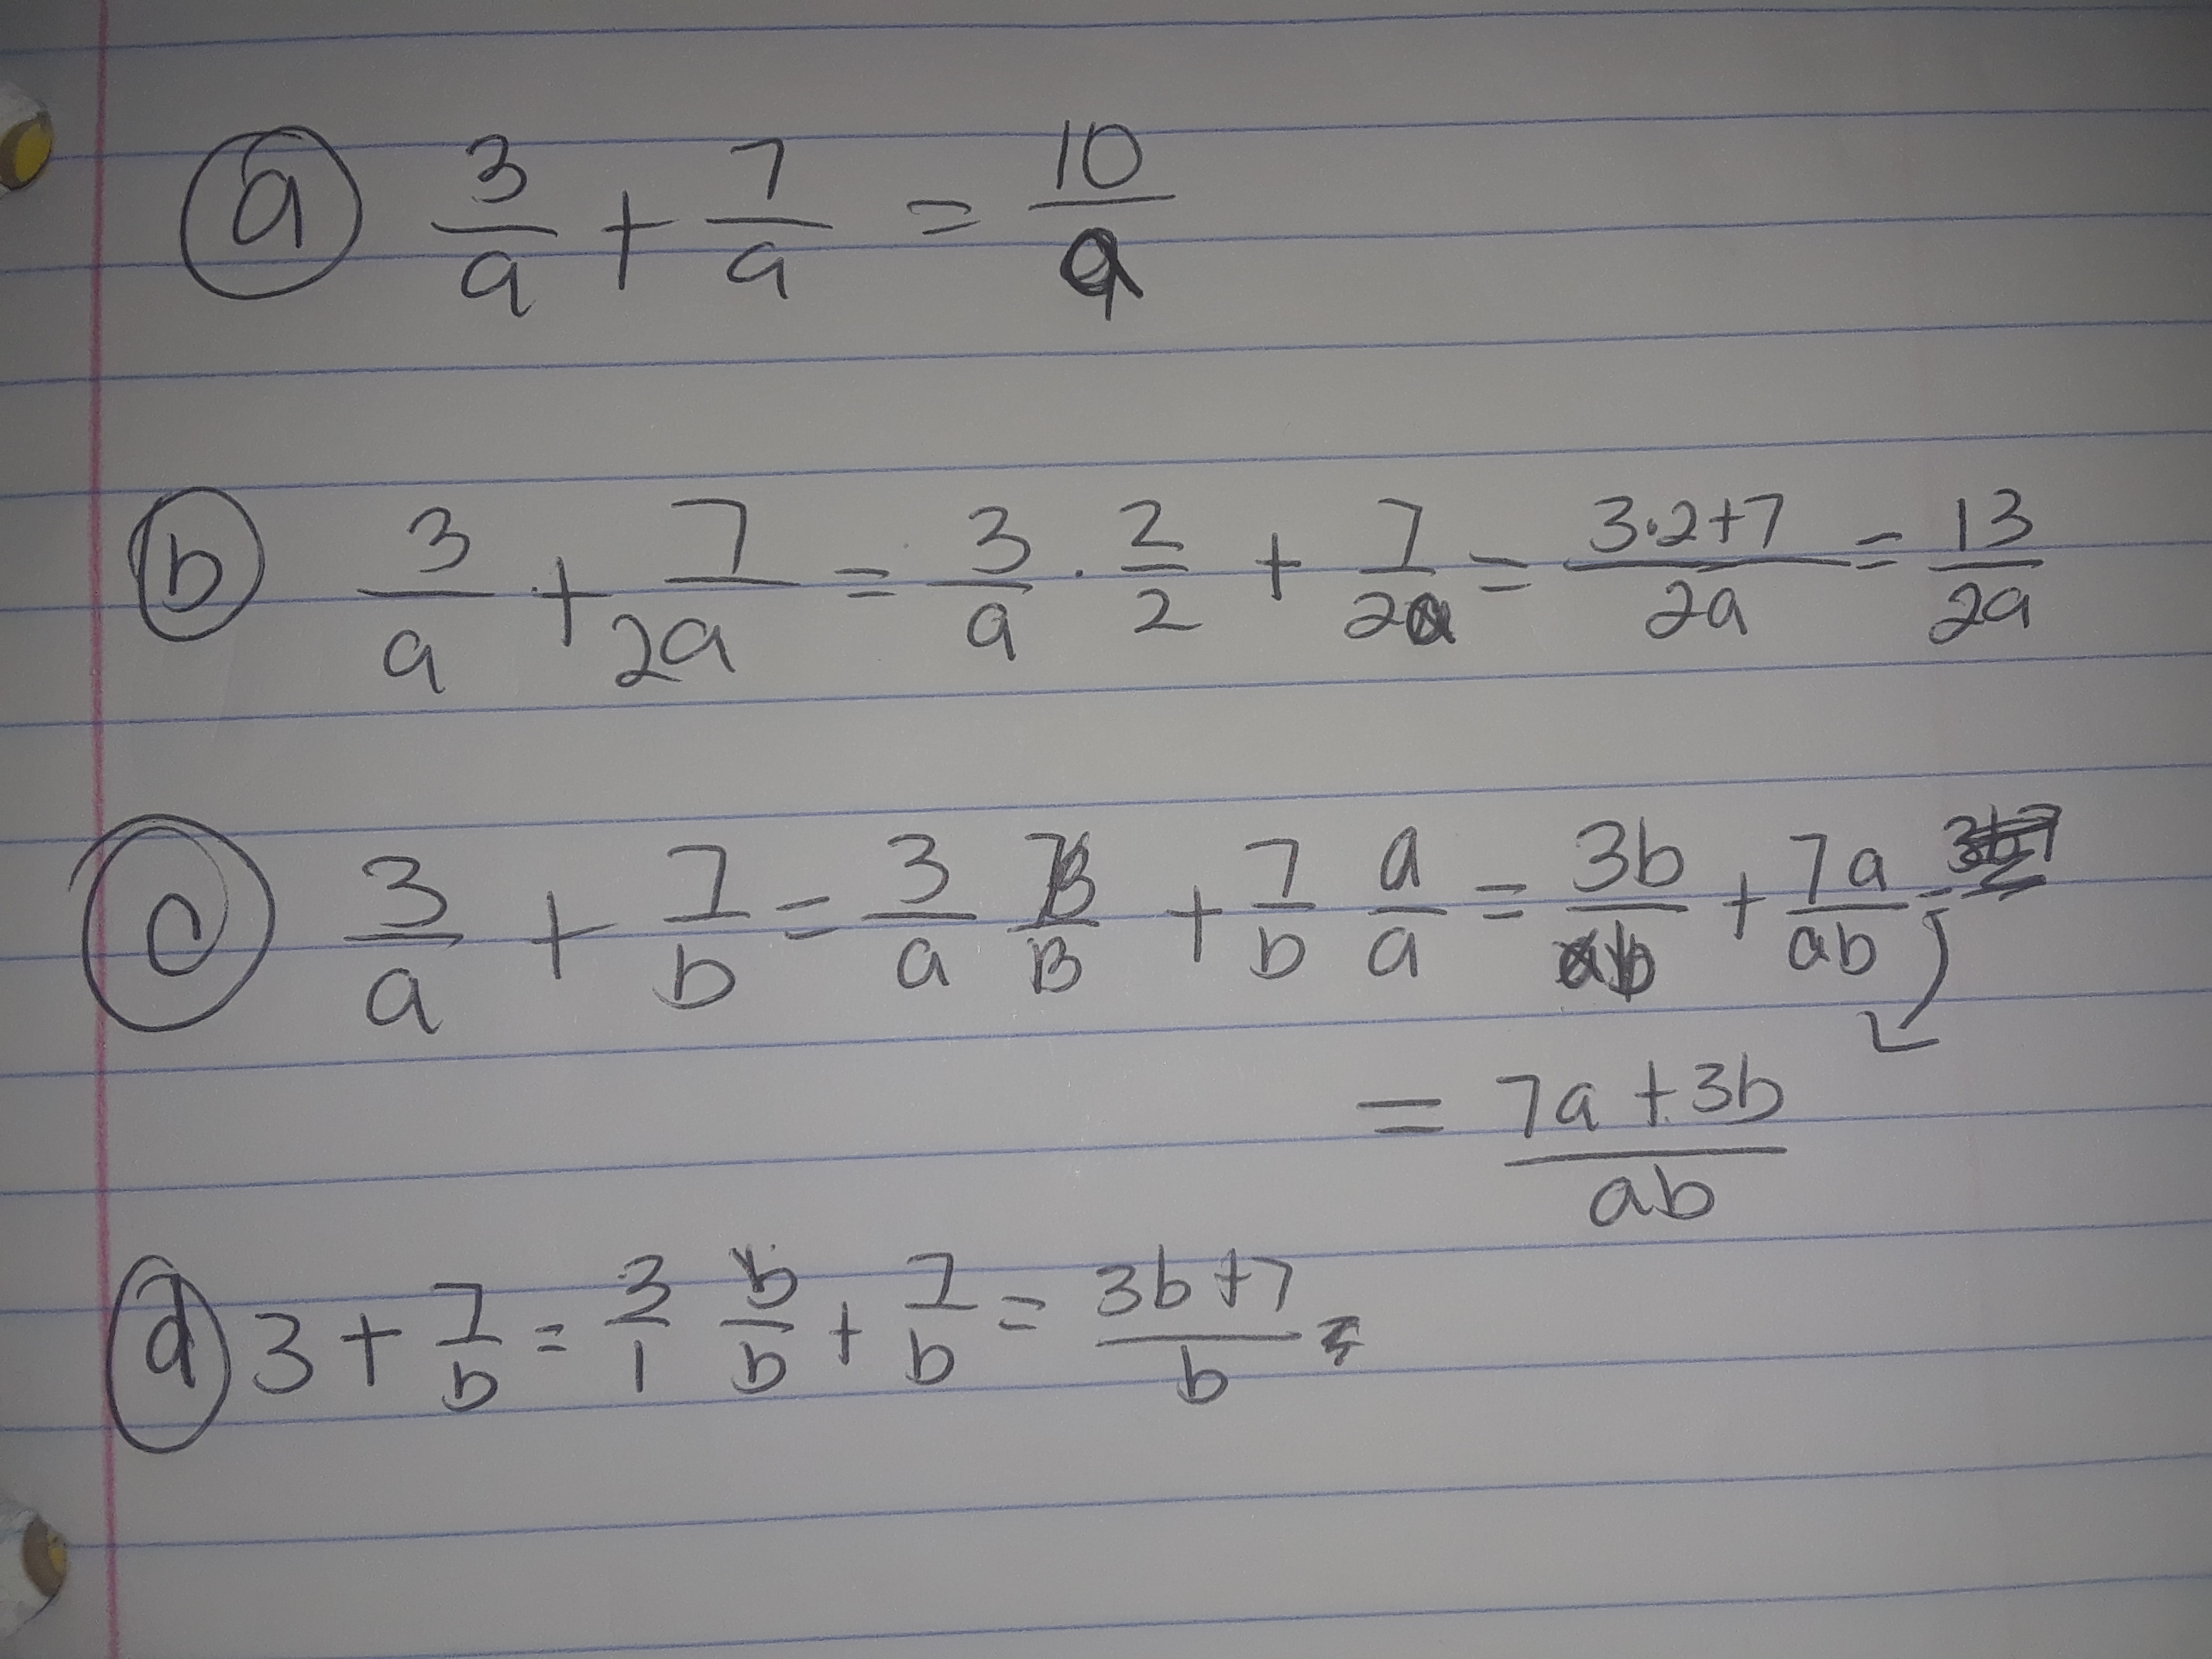 a 3/a + 7/a = 10/a
b 3/a + 7/2a = 3/a · 2/2 + 7/2a = 3·2+7/2a = 13/2a
c 3/a + 7/b = 3/a B/B + 7/b a/a = 3b/ab + 7a/ab =
= 7a+3b/ab
d 3 + 7/b = 3/1 b/b + 7/b = 3b+7/b